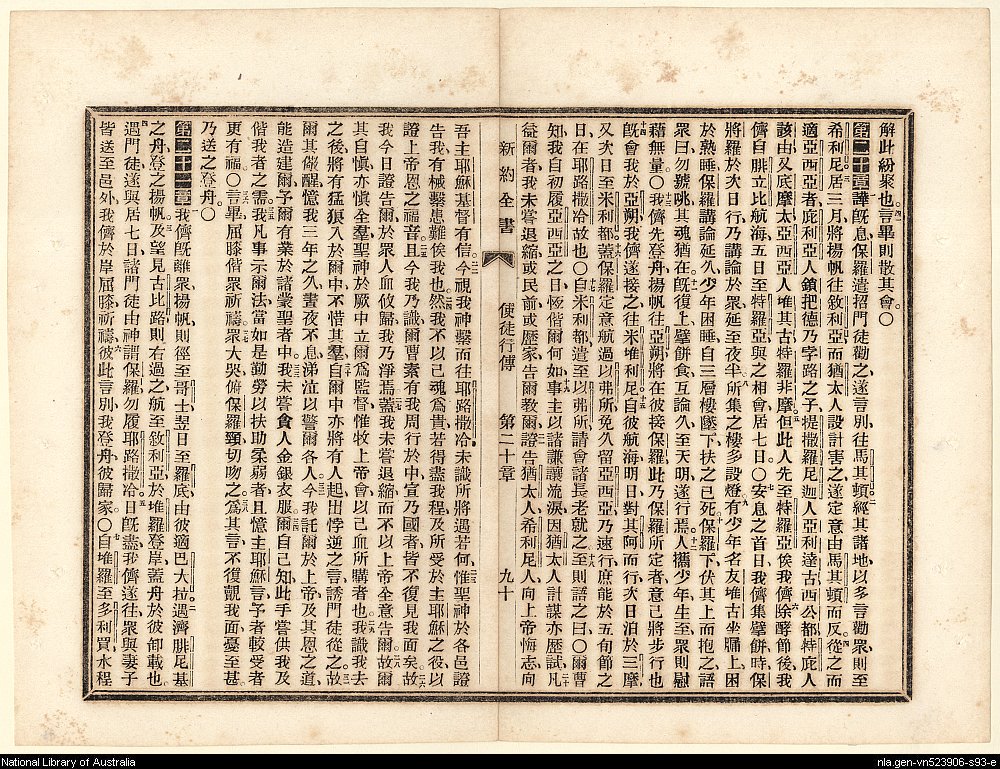 解此紛聚也言畢則散其會○
第二十章譁既息保羅遣招門徒勸之遂言別往馬其頓經其諸地以多言勸衆則至
希利尼居三月將揚帆往敘利亞而猶太人設計害之遂定意由馬其頓而反從之而
適亞西亞者庇利亞人鎖把德乃孛路之子提撒羅尼迦人亞利達古西公都特庇人
該由又底摩太亞西亞人堆其古特羅非摩但此人先至特羅亞俟我儕除酵節後我
儕自腓立比航海五日至特羅亞與之相會居七日○安息之首日我儕集擘餅時保
將羅於次日行乃講論於衆延至夜半所集之樓多設燈有少年名友堆古坐牖上困
於熟睡保羅講論延久少年困睡自三層樓墜下扶之已死保羅下伏其上而抱之語
衆曰勿號咷其魂猶在既復上擘餅食互論久至天明遂行焉人攜少年生至衆則慰
藉無量○我儕先登舟揚帆往亞朔將在彼接保羅此乃保羅所定者意己將步行也
既會我於亞朔我儕遂接之往米堆利尼自彼航海明日對其阿而行次日泊於三摩
又次日至米利都蓋保羅定意航過以弗所免久留亞西亞乃速行庶能於五旬節之
日在耶路撒冷故也○自米利都遣至以弗所請會諸長老就之至則語之曰○爾曹
知我自初履亞西亞之日恆偕爾何如事主以諸謙讓流淚因猶太人計謀亦歷試凡
益爾者我未嘗退縮或民前或歷家告爾教爾證告猶太人希利尼人向上帝悔志向
新約全書 使徒行傳 第二十章 九十
吾主耶穌基督有信今視我神繫而往耶路撒冷未識所將遇若何惟聖神於各邑證
告我有械繫患難俟我也然我不以己魂爲貴若得盡我程及所受於主耶穌之役以
證上帝恩之福音且今我乃識爾曹素有我周行於中宣乃國者皆不復見我面矣故
我今日證告爾於衆人血攸歸我乃淨焉蓋我未嘗退縮而不以上帝全意告爾故
其自慎亦愼全羣聖神於厥中立爾爲監督惟牧上帝會以己血所購者也我識我去
之後將有猛狼入於爾中不惜其羣自爾中亦將有人起出悖逆之言誘門徒從之故
爾其儆醒憶我三年之久晝夜不息涕泣以警爾各人今我託爾於上帝及其恩之道
能造建爾予爾有業於諸蒙聖者中我未嘗貪人金銀衣服爾自己知此手嘗供我及
偕我者之需我凡事示爾法當如是勤勞以扶助柔弱者且憶主耶穌言予者較受者
更有福○言畢屈膝偕衆祈禱衆大哭俯保羅頸切吻之爲其言不復覿我面憂至甚
乃送之登舟○
第二十一章我儕既離衆揚帆則徑至哥士翌日至羅底由彼適巴大拉遇濟腓尼基
之舟登之揚帆及望見古比路則右過之航至敘利亞於堆羅登岸蓋舟於彼卸載也
遇門徒遂與居七日諸門徒由神謂保羅勿履耶路撒冷日既盡我儕遂往衆與妻子
皆送至邑外我儕於岸屈膝祈禱彼此言別我登舟彼歸家○自堆羅至多利買水程
National Library of Australia
nla.gen-vn523906-s93-e